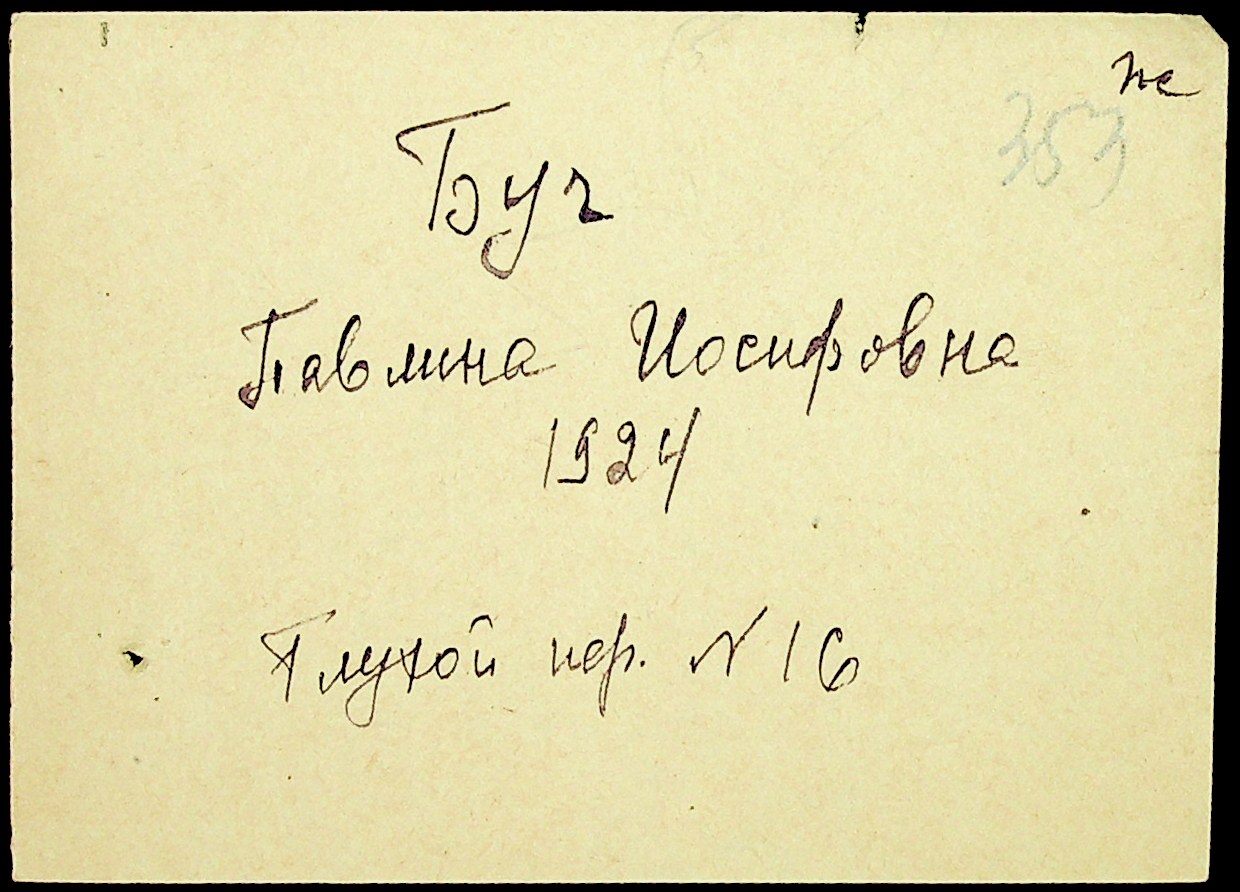 ж
353
Буч
Павлина Иосифовна
1924
Глухой пер. N 16